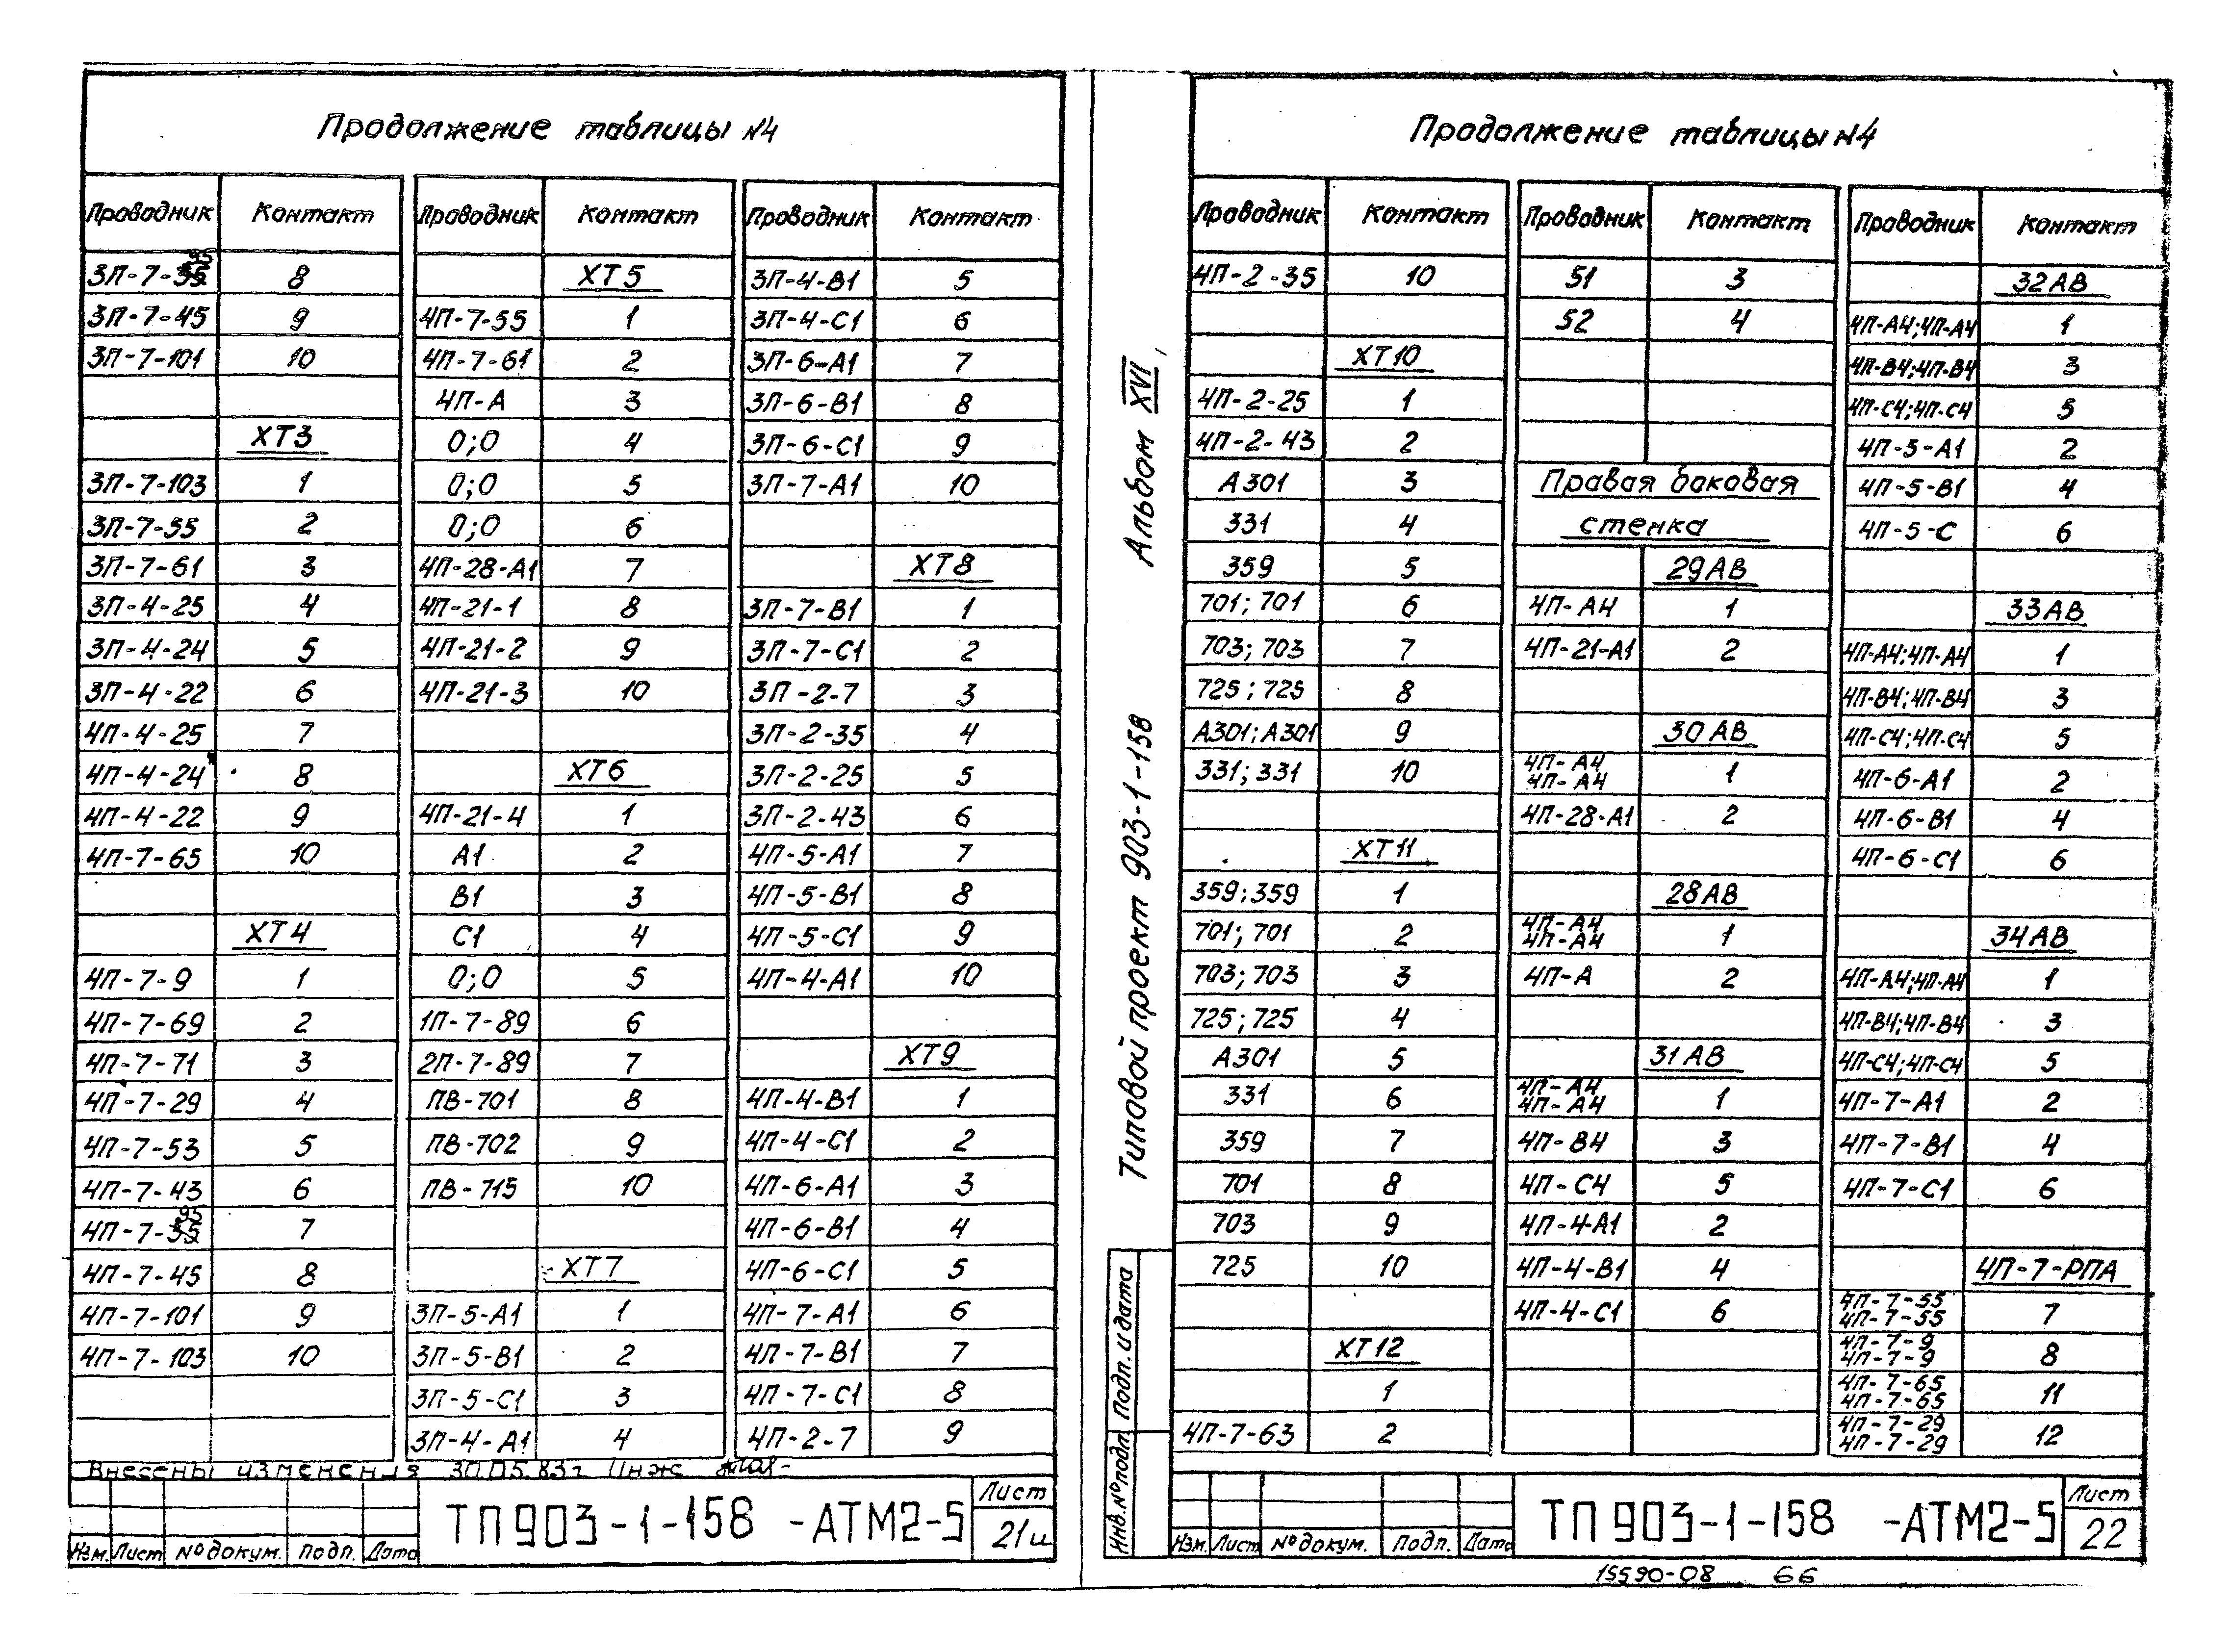 Продолжение таблицы N4
Проводник Контакт Проводник Контакт Проводник Контакт
3П-7-95 8 ХТ5 3П-4-В1 5
3П-7-45 9 4П-7-55 1 3П-4-С1 6
3П-7-101 10 4П-7-61 2 3П-6-А1 7
4П-А 3 3П-6-В1 8
ХТ3 0;0 4 3П-6-С1 9
3П-7-103 1 0;0 5 3П-7-А1 10
3П-7-55 2 0;0 6
3П-7-61 3 4П-28-А1 7 ХТ8
3П-4-25 4 4П-21-1 8 3П-7-В1 1
3П-4-24 5 4П-21-2 9 3П-7-С1 2
3П-4-22 6 4П-21-3 10 3П-2-7 3
4П-4-25 7 3П-2-35 4
4П-4-24 8 ХТ6 3П-2-25 5
4П-4-22 9 4П-21-4 1 3П-2-43 6
4П-7-65 10 А1 2 4П-5-А1 7
В1 3 4П-5-В1 8
ХТ4 С1 4 4П-5-С1 9
4П-7-9 1 0;0 5 4П-4-А1 10
4П-7-69 2 1П-7-89 6
4П-7-71 3 2П-7-89 7 ХТ9
4П-7-29 4 ПВ-701 8 4П-4-В1 1
4П-7-53 5 ПВ-702 9 4П-4-С1 2
4П-7-43 6 ПВ-715 10 4П-6-А1 3
4П-7-95 7 4П-6-В1 4
4П-7-45 8 ХТ7 4П-6-С1 5
4П-7-101 9 3П-5-А1 1 4П-7-А1 6
4П-7-103 10 3П-5-В1 2 4П-7-В1 7
3П-5-С1 3 4П-7-С1 8
3П-4-А1 4 4П-2-7 9
Внесены изменения 30.05.83г Инж
ТП 903-1-158 -АТМ2-5
Лист
21и
Изм. Лист № докум. Подп. Дата
Типовой проект 903-1-158 Альбом XVI
Инв. № подл. Подп. и дата
Продолжение таблицы N4
Проводник Контакт Проводник Контакт Проводник Контакт
4П-2-35 10 51 3 32АВ
52 4 4П-А4;4П-А4 1
ХТ10 4П-В4;4П-В4 3
4П-2-25 1 4П-С4;4П-С4 5
4П-2-43 2 4П-5-А1 2
А301 3 Правая боковая 4П-5-В1 4
331 4 стенка 4П-5-С 6
359 5 29АВ
701;701 6 4П-А4 1 33АВ
703;703 7 4П-21-А1 2 4П-А4;4П-А4 1
725;725 8 4П-В4;4П-В4 3
А301;А301 9 30АВ 4П-С4;4П-С4 5
331;331 10 4П-А4 4П-А4 1 4П-6-А1 2
4П-28-А1 2 4П-6-В1 4
ХТ11 4П-6-С1 6
359;359 1 28АВ
701;701 2 4П-А4 4П-А4 1 34АВ
703;703 3 4П-А 2 4П-А4;4П-А4 1
725;725 4 4П-В4;4П-В4 3
А301 5 31АВ 4П-С4;4П-С4 5
331 6 4П-А4 4П-А4 1 4П-7-А1 2
359 7 4П-В4 3 4П-7-В1 4
701 8 4П-С4 5 4П-7-С1 6
703 9 4П-4-А1 2
725 10 4П-4-В1 4 4П-7-РПА
4П-4-С1 6 4П-7-55 4П-7-55 7
ХТ12 4П-7-9 4П-7-9 8
1 4П-7-65 4П-7-65 11
4П-7-63 2 4П-7-29 4П-7-29 12
ТП 903-1-158 -АТМ2-5
Лист
22
Изм. Лист № докум. Подп. Дата
15590-08 66